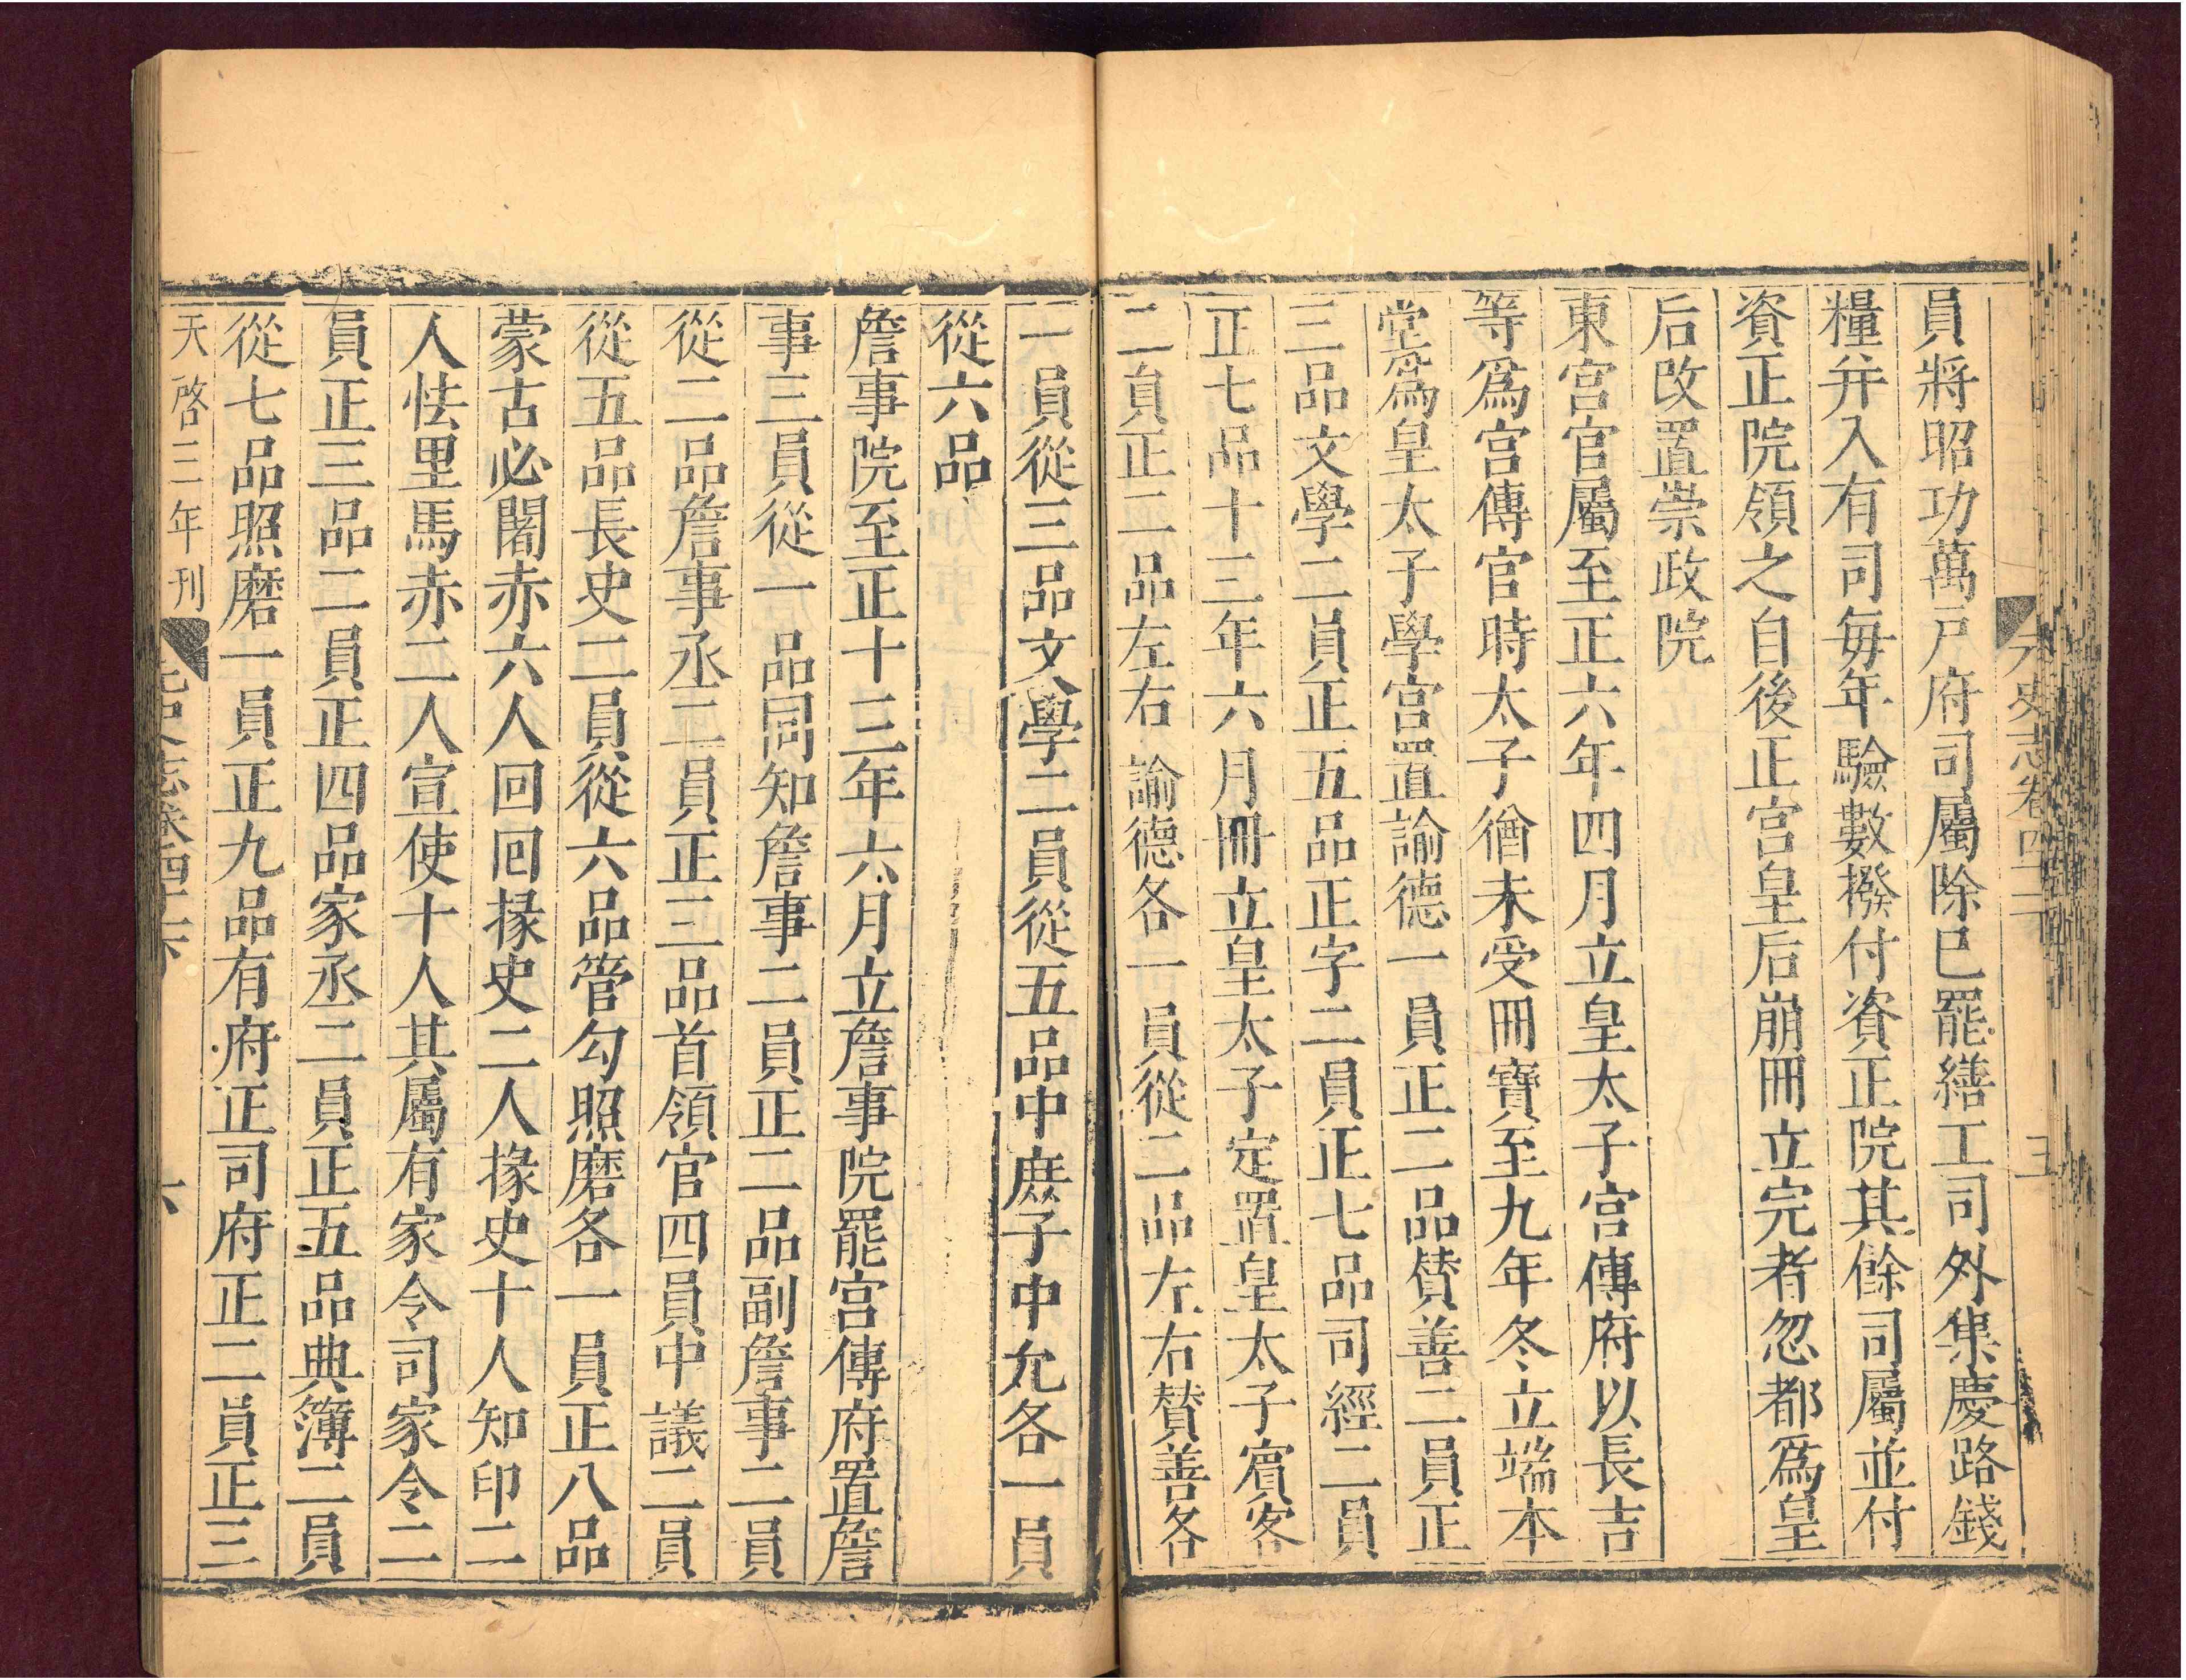 員將昭功萬戸府司屬除已罷繕工司外集慶路錢
糧并入有司每年驗數撥付資正院其餘司屬並付
資正院領之自後正宮皇后崩冊立完者忽都爲皇
后改置崇政院
東宮官屬至正六年四月立皇太子宮傳府以長吉
等爲宮傳官時太子猶未受冊寶至九年冬立端本
堂爲皇太子學宮置諭德一員正二品賛善二員正
三品文學二員正五品正字二員正七品司經二員
正七品十三年六月冊立皇太子定置皇太子賓客
二員正二品左右諭德各一員從二品左右賛善各
一員從三品文學二員從五品中庶子中允各一員
從六品
詹事院至正十三年六月立詹事院罷宮傳府置詹
事三員從一品同知詹事二員正二品副詹事二員
從二品詹事丞二員正三品首領官四員中議二員
從五品長史二員從六品管勾照磨各一員正八品
蒙古必闍赤六人回回掾史二人掾史十人知印二
人怯里馬赤二人宣使十人其屬有家令司家令二
員正三品二員正四品家丞二員正五品典簿二員
從七品照磨一員正九品有府正司府正二員正三
天啓三年刊 元史志卷四十六 六